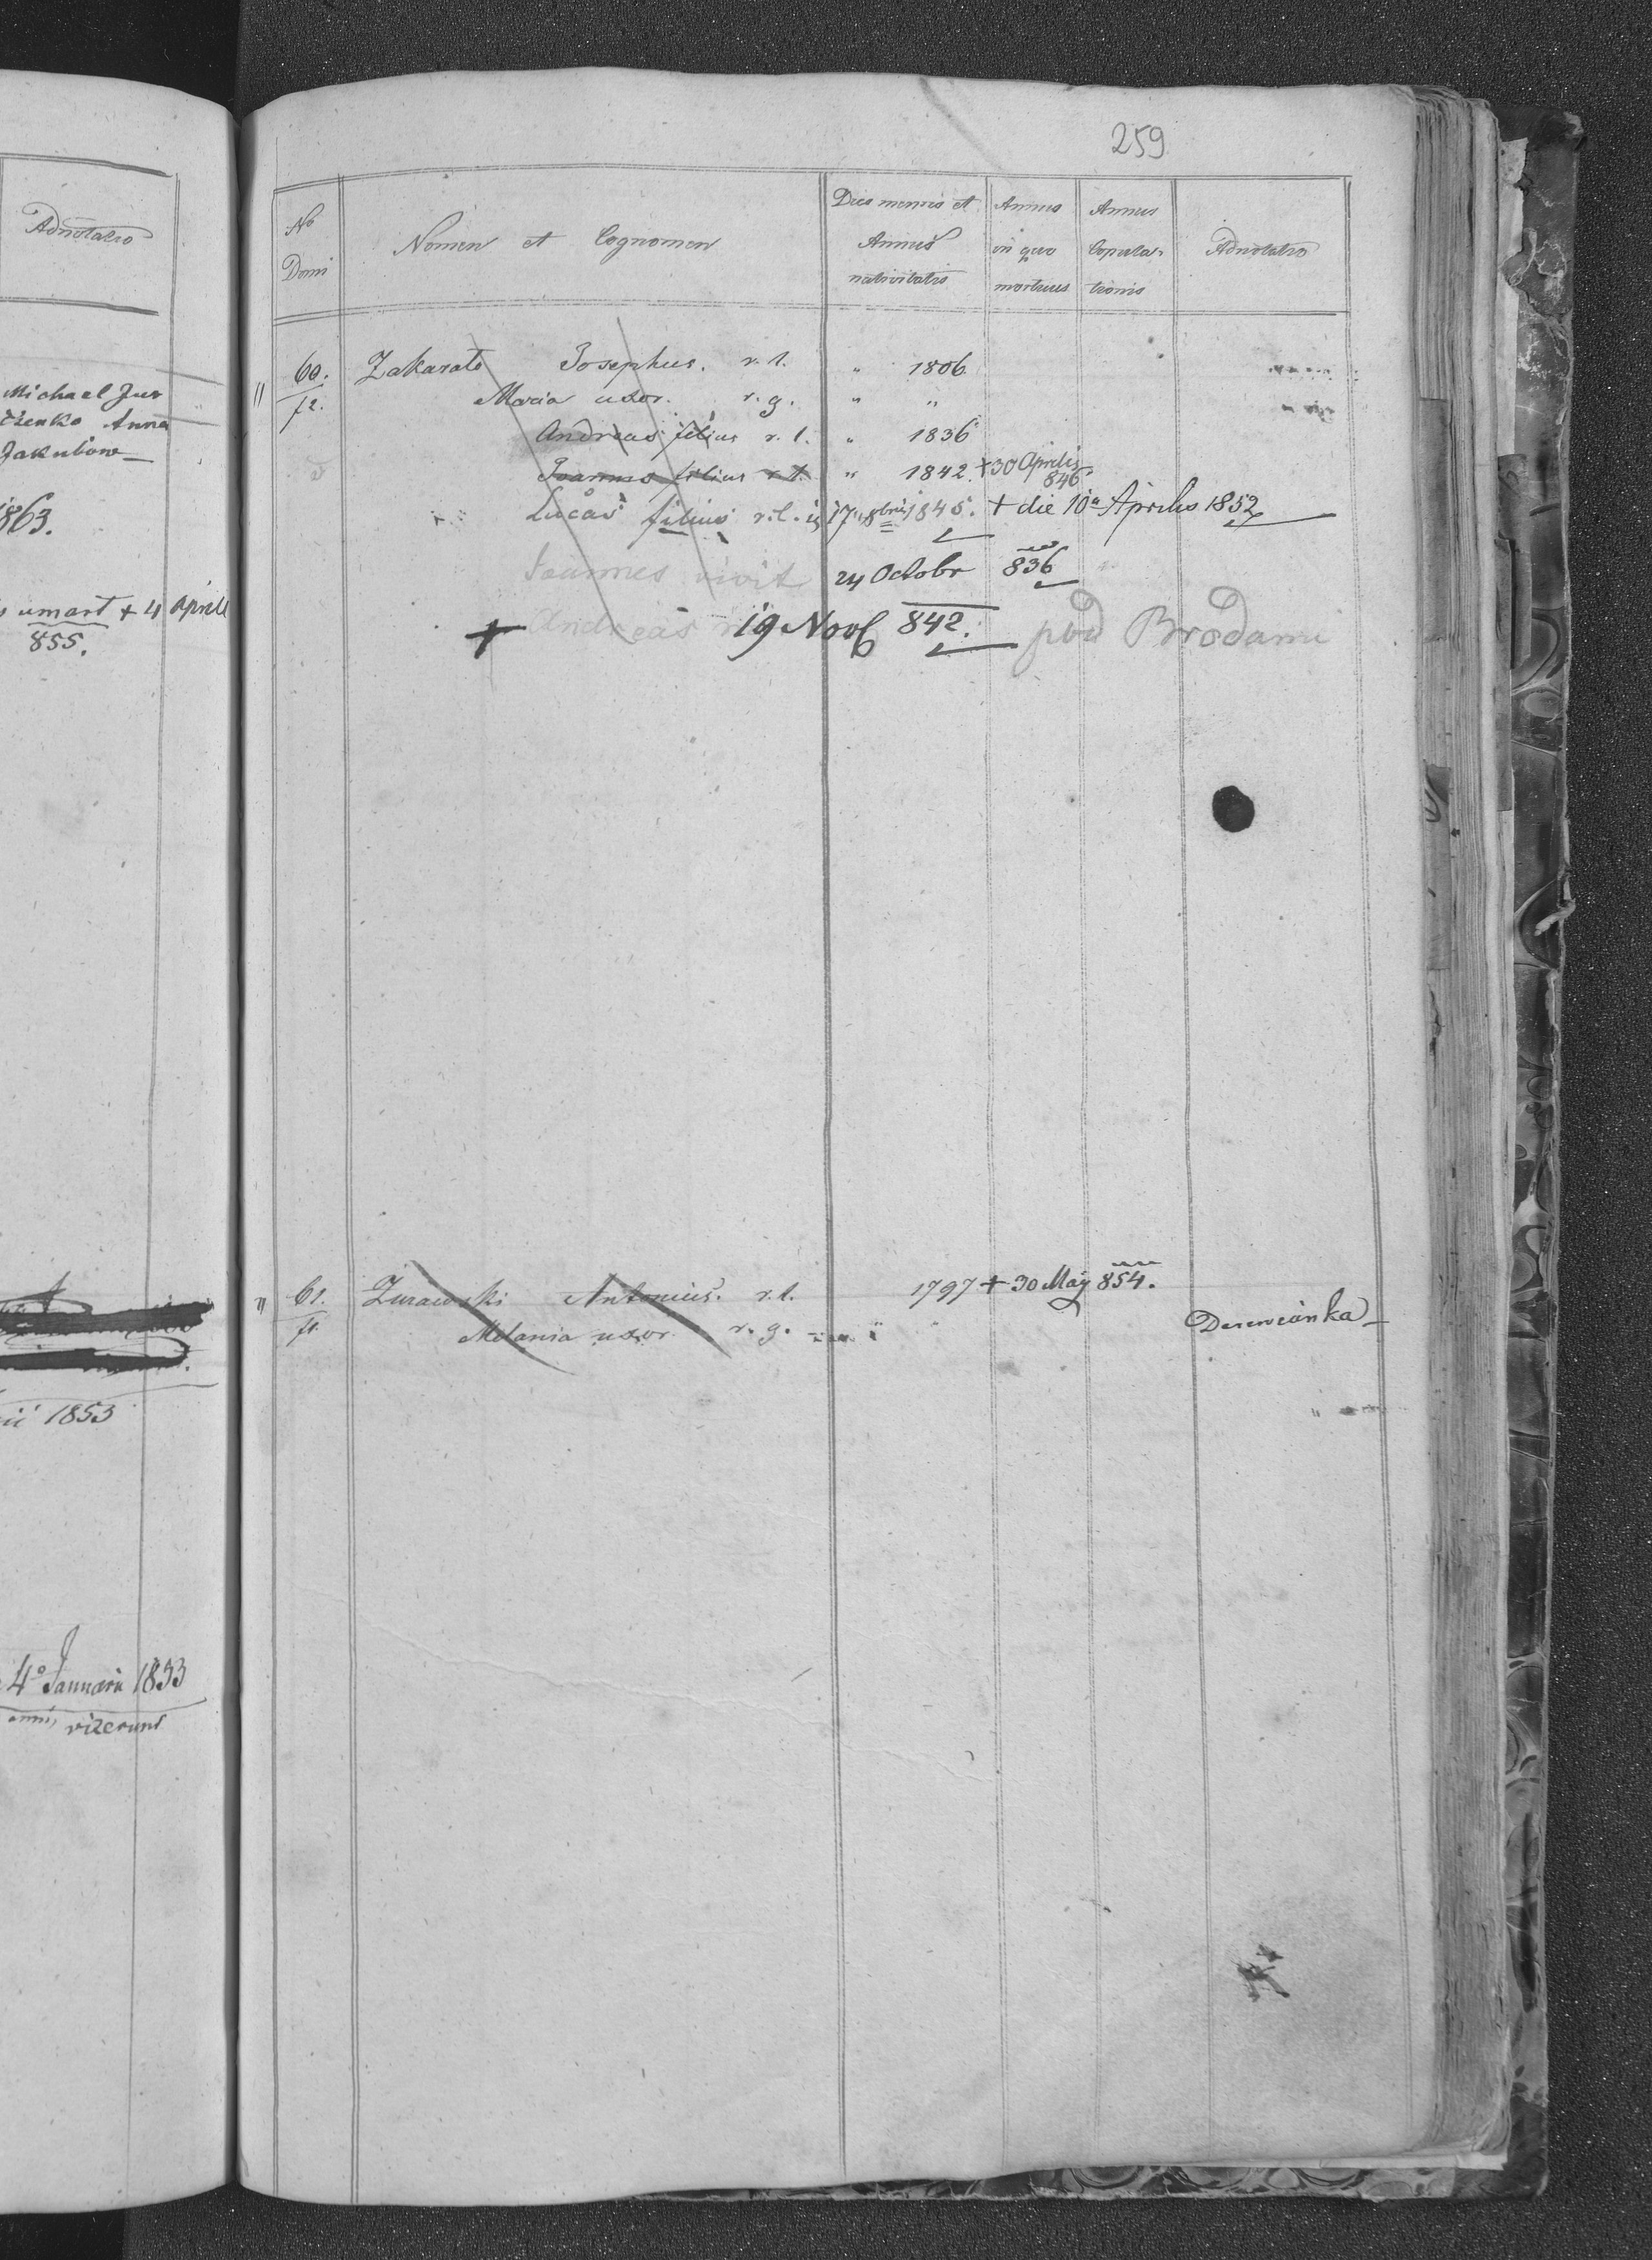 Adnotatio
Michael Jur
czenko Anna
Jakubow
1863.
umart + 4 Aprill
855.
1853
4º Januarii 1853
vixerunt
259
No Domi
Nomen et Cognomen
Dies mensis et Annus nativitatis
Annus in quo mortuus
Annus Copula-tionis
Adnotatio
60. Zakarato Josephus. r. l. " 1806
12. Maria uxor. r. g. " "
Andreas filius r. l. " 1836
Joannes filius r. l. " 1842. + 30 Aprilis 846
Lucas filius r. l. 17 8bris 1845. + die 10a Aprilis 1852
Joannes vivit 24 Octobr 836
+ Andreas 19 Novb 842. pod Brodami
61. Zurawski Antonius. r. l. 1797 + 30 Maj 854.
Melania uxor. r. g. " Derewianka